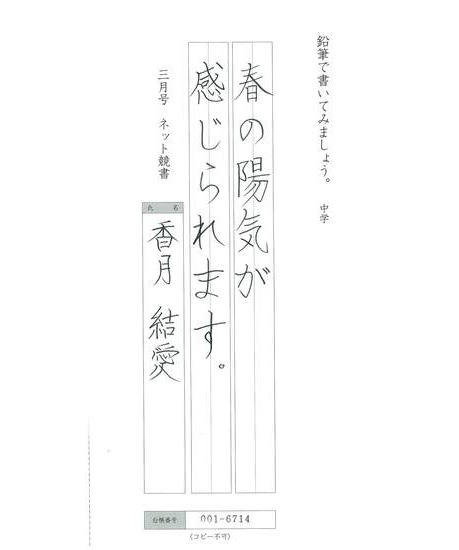 鉛筆で書いてみましょう。 中学
春の陽気が
感じられます。
三月号 ネット競書
氏 名
香月 結愛
台帳番号 001-6714
(コピー不可)